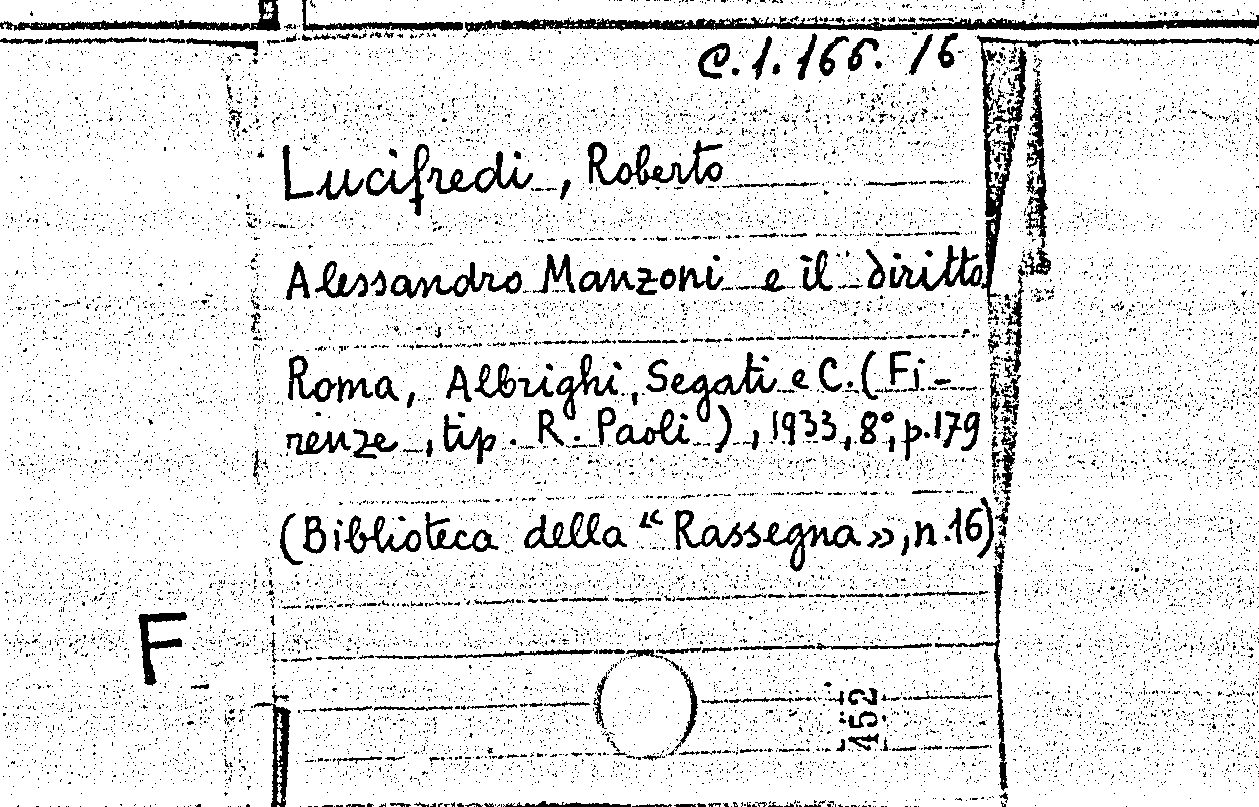 C.1.166. /6
Lucifredi, Roberto
Alessandro Manzoni e il diritto
Roma, Albrighi, Segati e C. (Fi-
renze, tip. R. Paoli), 1933, 8°, p. 179
(Biblioteca della “Rassegna», n. 16)
F
452